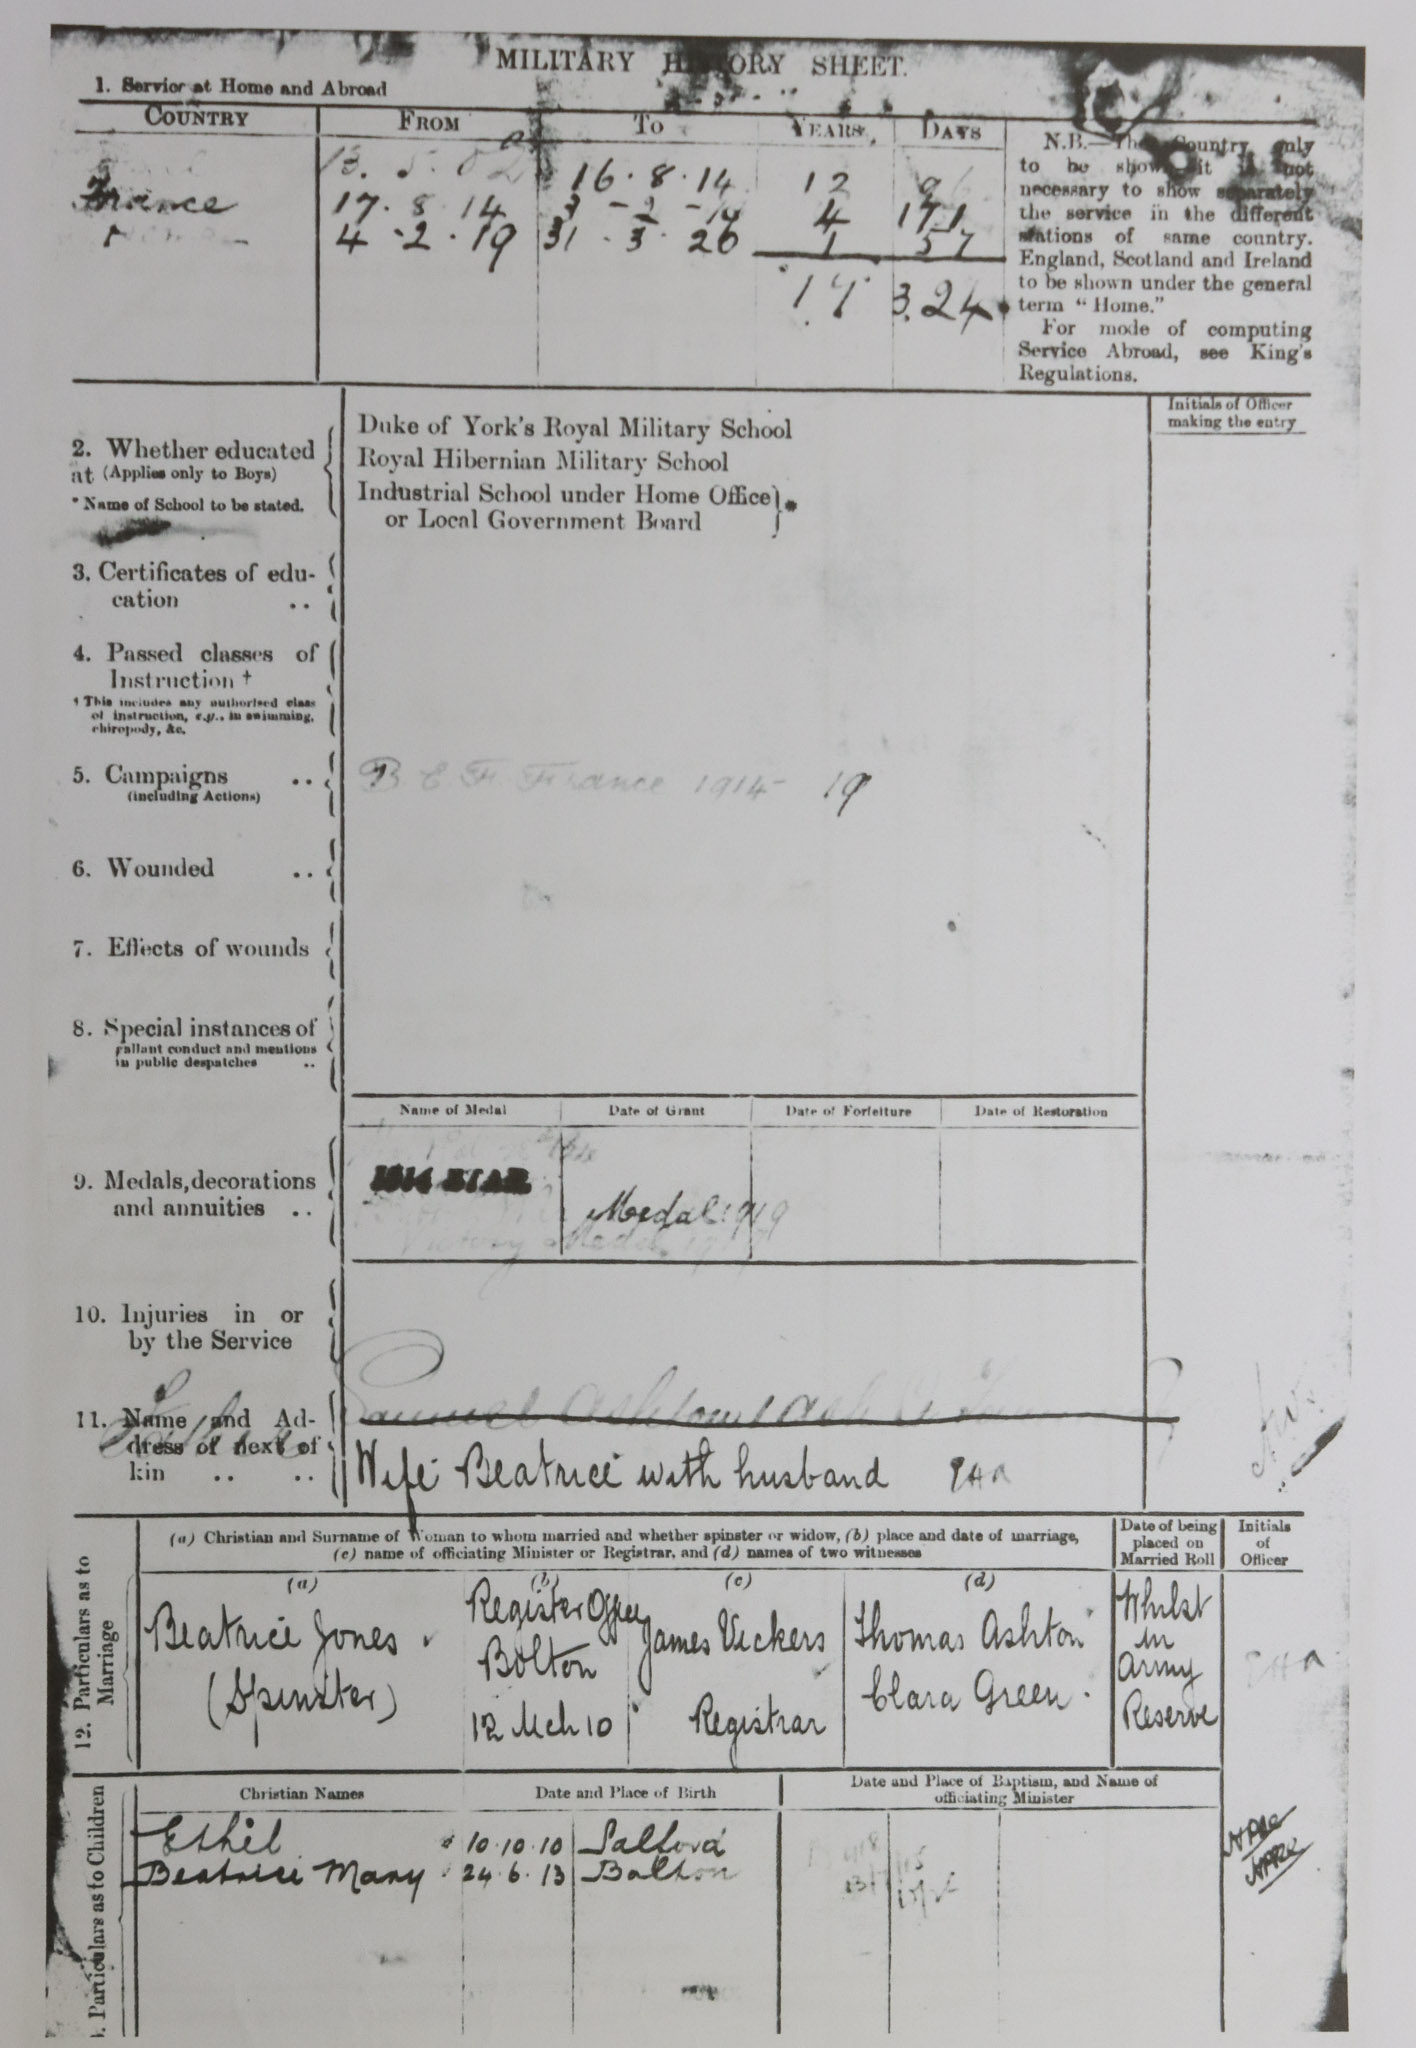 MILITARY HISTORY SHEET.
1. Service at Home and Abroad
COUNTRY FROM TO YEARS DAYS
13. 5. 02 16. 8. 14 12 96
France 17. 8. 14 3 - 2 - 19 4 171
4. 2. 19 31. 3. 20 1 57
17 324
N.B.—The Country only
to be shown, it is not
necessary to show separately
the service in the different
stations of same country.
England, Scotland and Ireland
to be shown under the general
term “Home.”
For mode of computing
Service Abroad, see King's
Regulations.
Initials of Officer
making the entry
2. Whether educated
at (Applies only to Boys)
* Name of School to be stated.
Duke of York's Royal Military School
Royal Hibernian Military School
Industrial School under Home Office
or Local Government Board } *
3. Certificates of edu-
cation ..
4. Passed classes of
Instruction †
† This includes any authorised class
of instruction, e.g., in swimming,
chiropody, &c.
5. Campaigns ..
(including Actions)
B. E. F. France 1914-19
6. Wounded ..
7. Effects of wounds
8. Special instances of
gallant conduct and mentions
in public despatches ..
Name of Medal Date of Grant Date of Forfeiture Date of Restoration
9. Medals, decorations
and annuities ..
1914 STAR
Medal 1919
Victory Medal
10. Injuries in or
by the Service
11. Name and Ad-
dress of next of
kin .. ..
Father
Samuel Ashton
Wife Beatrice with husband
12. Particulars as to
Marriage
(a) Christian and Surname of Woman to whom married and whether spinster or widow, (b) place and date of marriage,
(c) name of officiating Minister or Registrar, and (d) names of two witnesses
Date of being
placed on
Married Roll
Initials
of
Officer
(a) (b) (c) (d)
Beatrice Jones
(Spinster)
Register Office
Bolton
12 Mch 10
James Vickers
Registrar
Thomas Ashton
Clara Green.
Whilst
in
Army
Reserve
Particulars as to Children
Christian Names Date and Place of Birth Date and Place of Baptism, and Name of
officiating Minister
Ethel 10.10.10 Salford
Beatrice Mary 24.6.13 Bolton